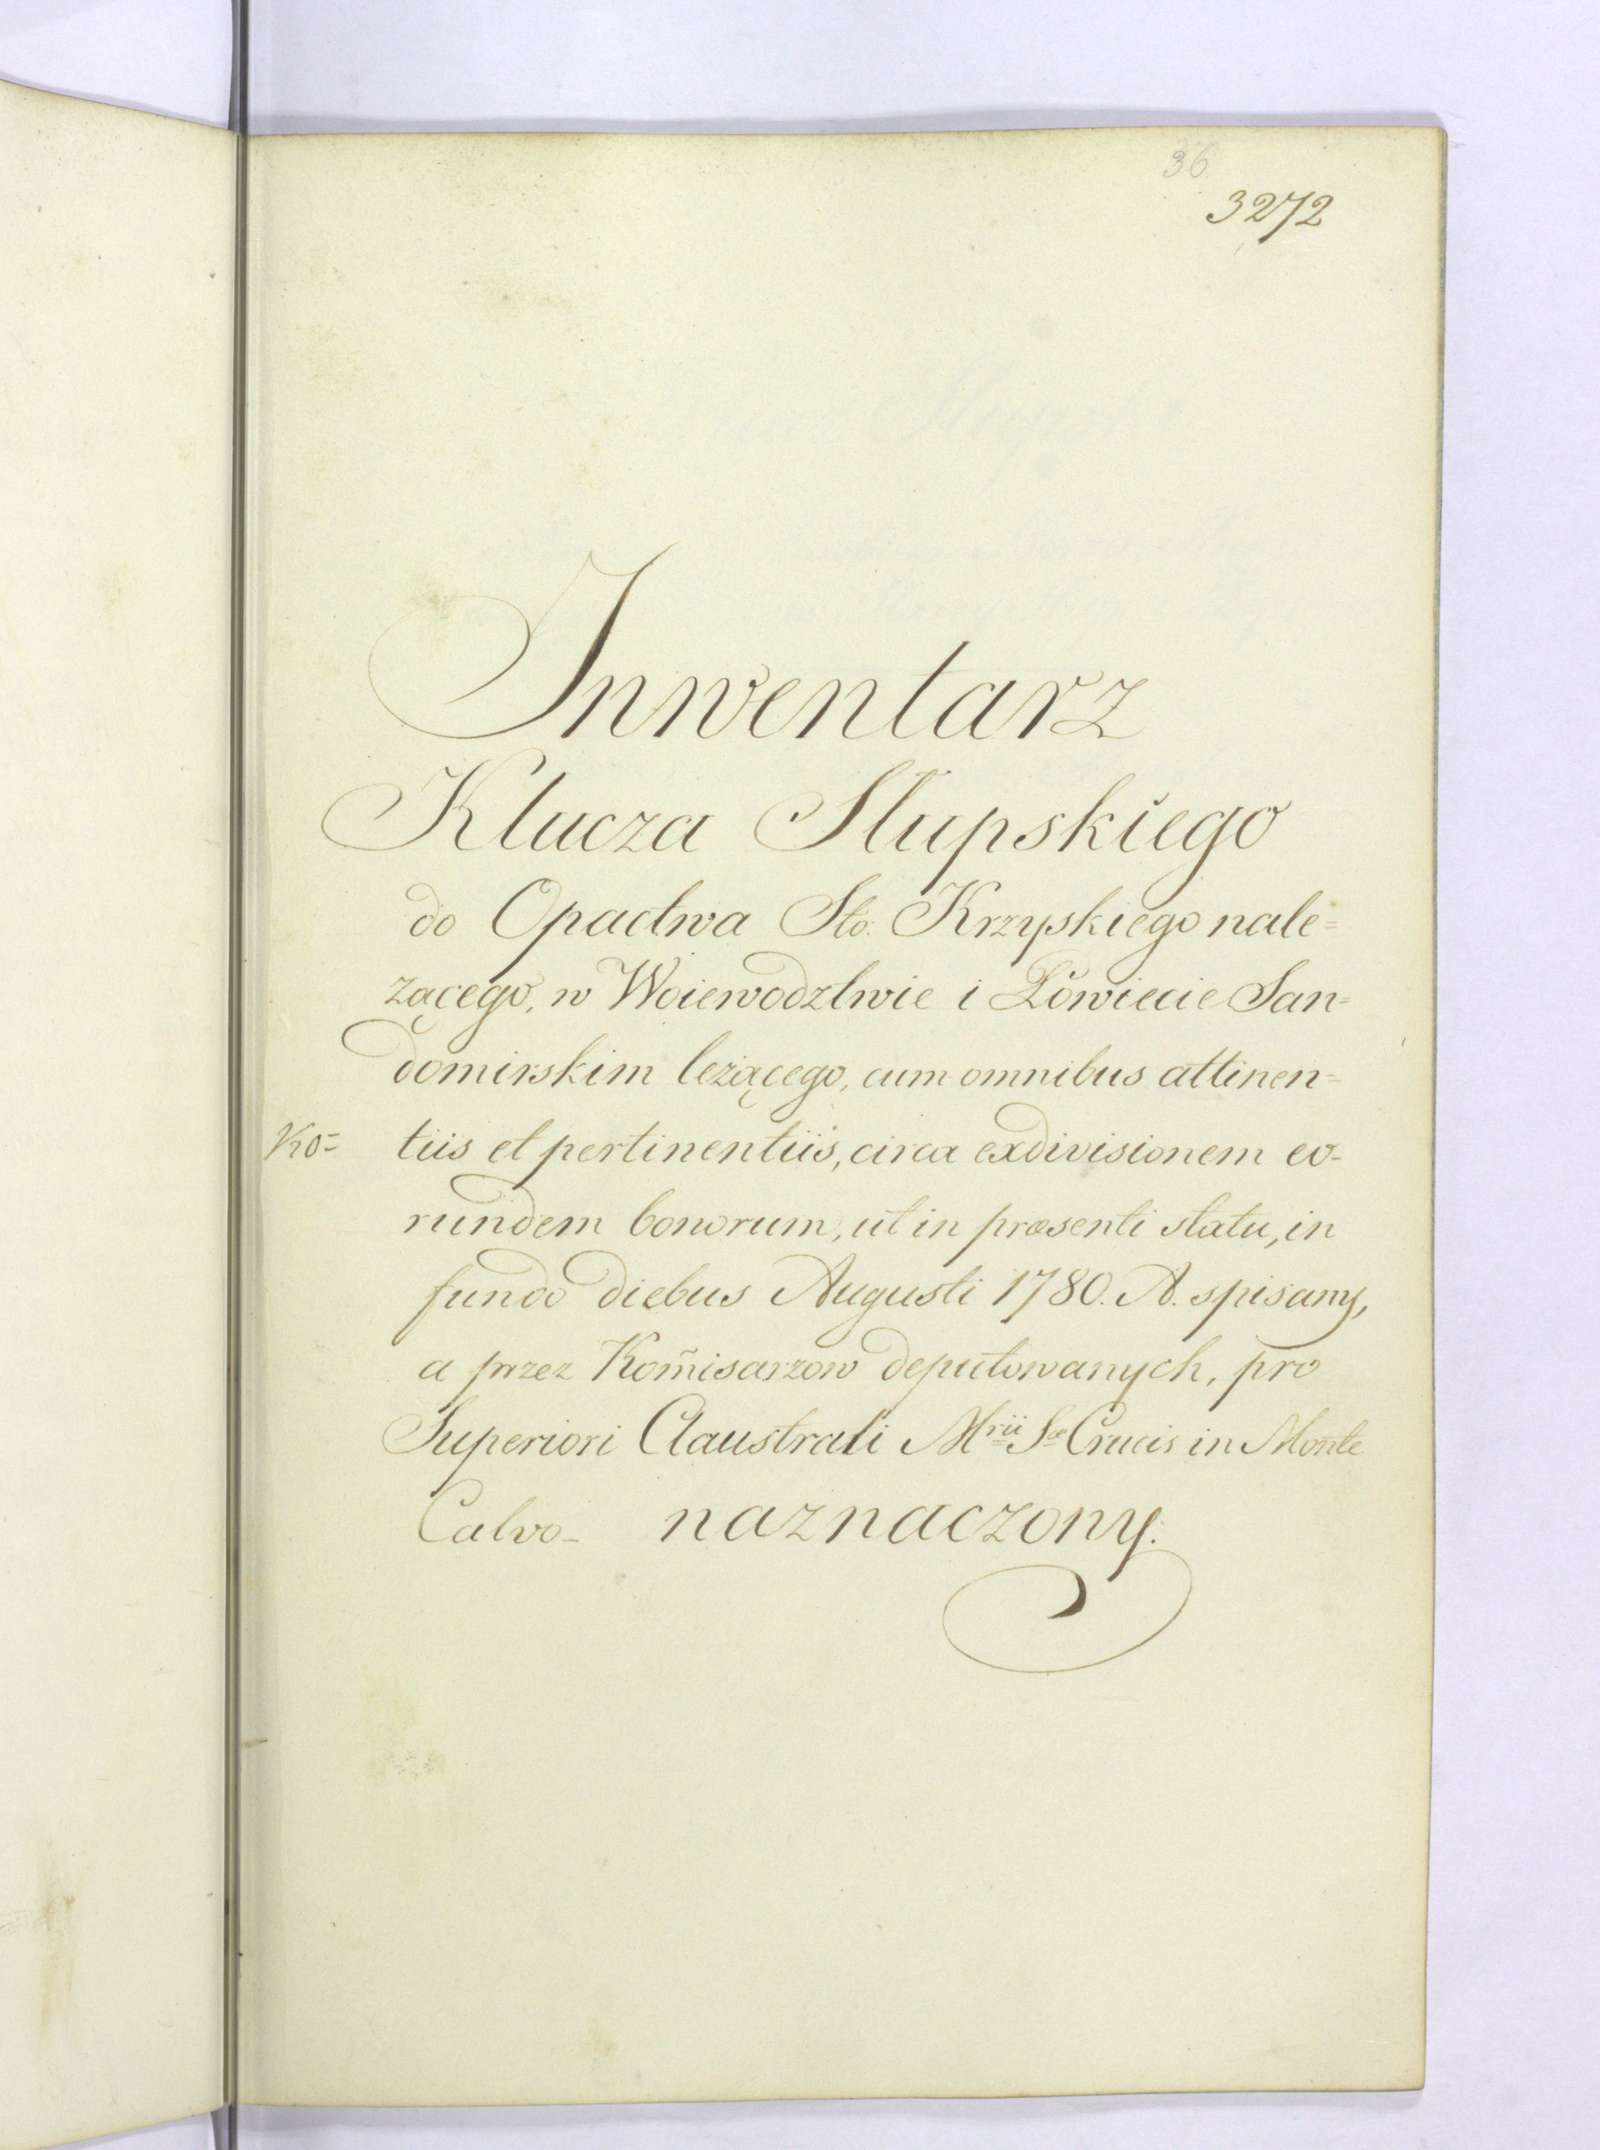 36
3272
Inwentarz
Klucza Słupskiego
do Opactwa Sto. Krzyskiego nale=
zącego, w Woiewodztwie i Powiecie San=
domirskim leżącego, cum omnibus attinen=
Ko= tiis et pertinentiis, circa exdivisionem eo-
rundem bonorum, ut in præsenti statu, in
fundo diebus Augusti 1780. A. spisany,
a przez Kom̃isarzow deputowanych, pro
Superiori Claustrali Mrii Sæ Crucis in Monte
Calvo- naznaczony.